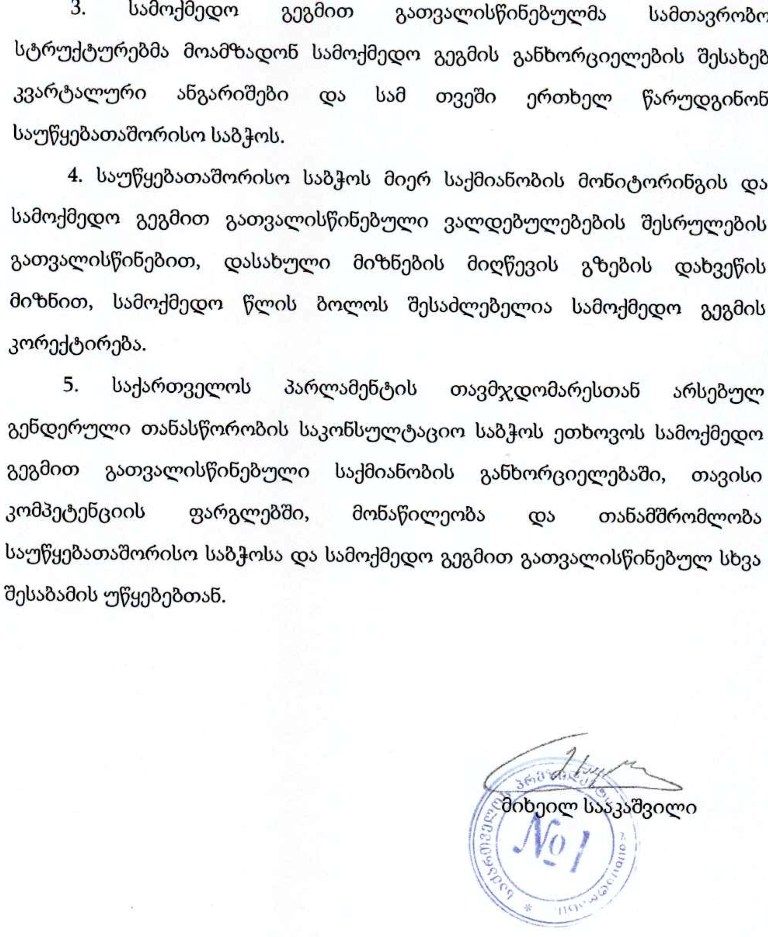 3. სამოქმედო გეგმით გათვალისწინებულმა სამთავრობო
სტრუქტურებმა მოამზადონ სამოქმედო გეგმის განხორციელების შესახებ
კვარტალური ანგარიშები და სამ თვეში ერთხელ წარუდგინონ
საუწყებათაშორისო საბჭოს.
4. საუწყებათაშორისო საბჭოს მიერ საქმიანობის მონიტორინგის და
სამოქმედო გეგმით გათვალისწინებული ვალდებულებების შესრულების
გათვალისწინებით, დასახული მიზნების მიღწევის გზების დახვეწის
მიზნით, სამოქმედო წლის ბოლოს შესაძლებელია სამოქმედო გეგმის
კორექტირება.
5. საქართველოს პარლამენტის თავმჯდომარესთან არსებულ
გენდერული თანასწორობის საკონსულტაციო საბჭოს ეთხოვოს სამოქმედო
გეგმით გათვალისწინებული საქმიანობის განხორციელებაში, თავისი
კომპეტენციის ფარგლებში, მონაწილეობა და თანამშრომლობა
საუწყებათაშორისო საბჭოსა და სამოქმედო გეგმით გათვალისწინებულ სხვა
შესაბამის უწყებებთან.
მიხეილ სააკაშვილი
საქართველოს პრეზიდენტის
№1